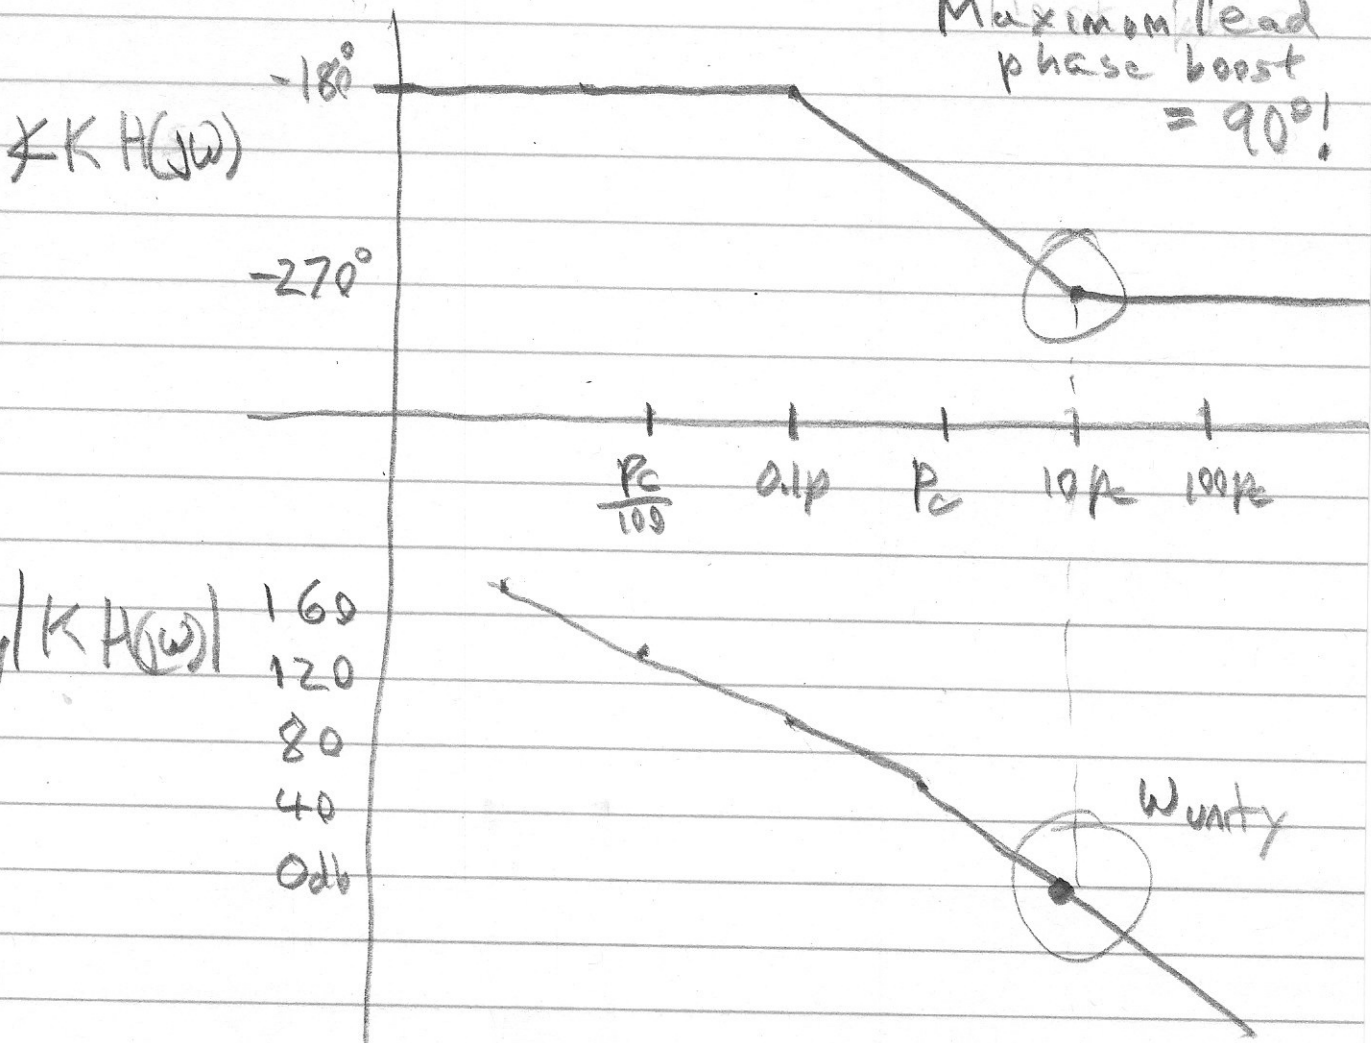 Maximum lead
phase boost
= 90°!
-180°
∡K H(jω)
-270°
Pc/100
0.1p
Pc
10pc
100pc
|K H(jω)|
160
120
80
40
0db
Wunity